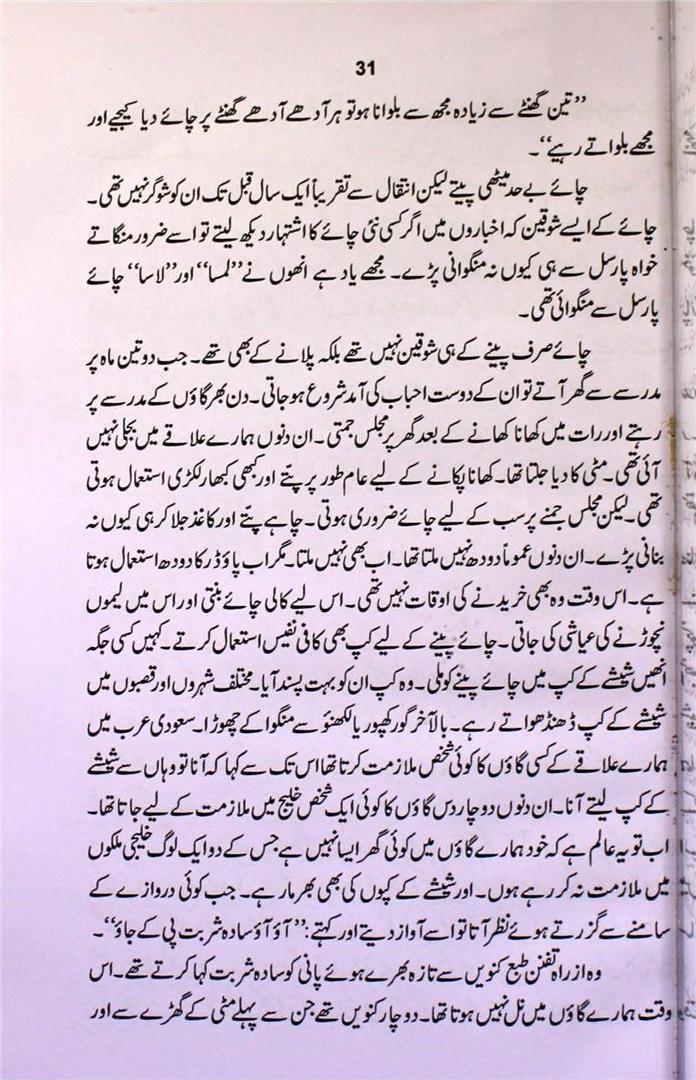 31
”تین گھنٹے سے زیادہ مجھ سے بلوانا ہو تو ہر آدھے آدھے گھنٹے پر چائے دیا کیجیے اور
مجھے بلواتے رہیے“۔
چائے بے حد میٹھی پیتے لیکن انتقال سے تقریباً ایک سال قبل تک ان کو شوگر نہیں تھی۔
چائے کے ایسے شوقین کہ اخباروں میں اگر کسی نئی چائے کا اشتہار دیکھ لیتے تو اسے ضرور منگاتے
خواہ پارسل سے ہی کیوں نہ منگوانی پڑے۔ مجھے یاد ہے انھوں نے ”لمسا“ اور ”لاسا“ چائے
پارسل سے منگوائی تھی۔
چائے صرف پینے کے ہی شوقین نہیں تھے بلکہ پلانے کے بھی تھے۔ جب دو تین ماہ پر
مدرسے سے گھر آتے تو ان کے دوست احباب کی آمد شروع ہو جاتی۔ دن بھر گاؤں کے مدرسے پر
رہتے اور رات میں کھانا کھانے کے بعد گھر پر مجلس جمتی۔ ان دنوں ہمارے علاقے میں بجلی نہیں
آئی تھی۔ مٹی کا دیا جلتا تھا۔ کھانا پکانے کے لیے عام طور پر پتے اور کبھی کبھار لکڑی استعمال ہوتی
تھی۔ لیکن مجلس جمنے پر سب کے لیے چائے ضروری ہوتی۔ چاہے پتے اور کاغذ جلا کر ہی کیوں نہ
بنانی پڑے۔ ان دنوں عموماً دودھ نہیں ملتا تھا۔ اب بھی نہیں ملتا۔ مگر اب پاؤڈر کا دودھ استعمال ہوتا
ہے۔ اس وقت وہ بھی خریدنے کی اوقات نہیں تھی۔ اس لیے کالی چائے بنتی اور اس میں لیموں
نچوڑنے کی عیاشی کی جاتی۔ چائے پینے کے لیے کپ بھی کافی نفیس استعمال کرتے۔ کہیں کسی جگہ
انھیں شیشے کے کپ میں چائے پینے کو ملی۔ وہ کپ ان کو بہت پسند آیا۔ مختلف شہروں اور قصبوں میں
شیشے کے کپ ڈھنڈھواتے رہے۔ بالآخر گورکھپور یا لکھنؤ سے منگوا کے چھوڑا۔ سعودی عرب میں
ہمارے علاقے کے کسی گاؤں کا کوئی شخص ملازمت کرتا تھا اس تک سے کہا کہ آنا تو وہاں سے شیشے
کے کپ لیتے آنا۔ ان دنوں دو چار دس گاؤں کا کوئی ایک شخص خلیج میں ملازمت کے لیے جاتا تھا۔
اب تو یہ عالم ہے کہ خود ہمارے گاؤں میں کوئی گھر ایسا نہیں ہے جس کے دو ایک لوگ خلیجی ملکوں
میں ملازمت نہ کر رہے ہوں۔ اور شیشے کے کپوں کی بھی بھرمار ہے۔ جب کوئی دروازے کے
سامنے سے گزرتے ہوئے نظر آتا تو اسے آواز دیتے اور کہتے: ”آؤ آؤ سادہ شربت پی کے جاؤ“۔
وہ از راہ تفنن طبع کنویں سے تازہ بھرے ہوئے پانی کو سادہ شربت کہا کرتے تھے۔ اس
وقت ہمارے گاؤں میں نل نہیں ہوتا تھا۔ دو چار کنویں تھے جن سے پہلے مٹی کے گھڑے سے اور